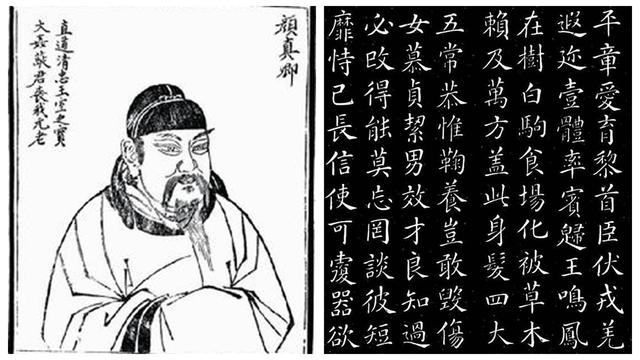 顔真卿
直道清忠王室之寶
大姦蔽君喪我元老
平章愛育黎首臣伏戎羌
遐迩壹體率賓歸王鳴鳳
在樹白駒食場化被草木
賴及萬方盖此身髮四大
五常恭惟鞠養豈敢毀傷
女慕貞絜男效才良知過
必改得能莫忘罔談彼短
靡恃己長信使可覆器欲